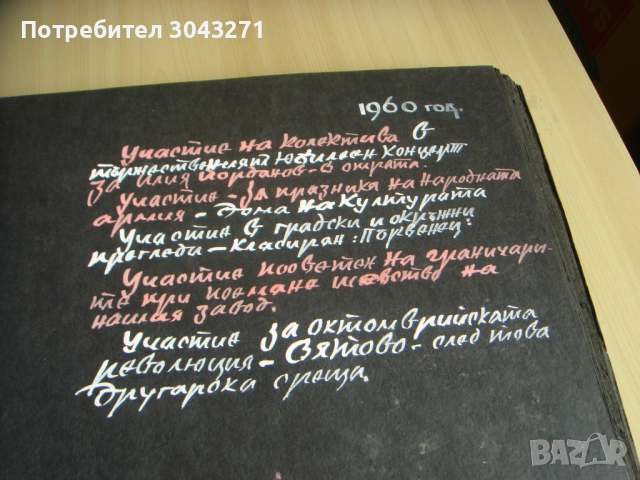 Потребител 3043271
1960 год.
Участие на колектива в
тържественият юбилеен концерт
за Илия Йорданов - в операта.
Участие - за празника на народната
армия - Дома на културата
Участие в градски и окръжни
прегледи - класиран: Първенец.
Участие посветен на граничари-
те при поемане шевство на
нашия завод.
Участие за октомврийската
революция - Святово - след това
другарска среща.
BAZAR